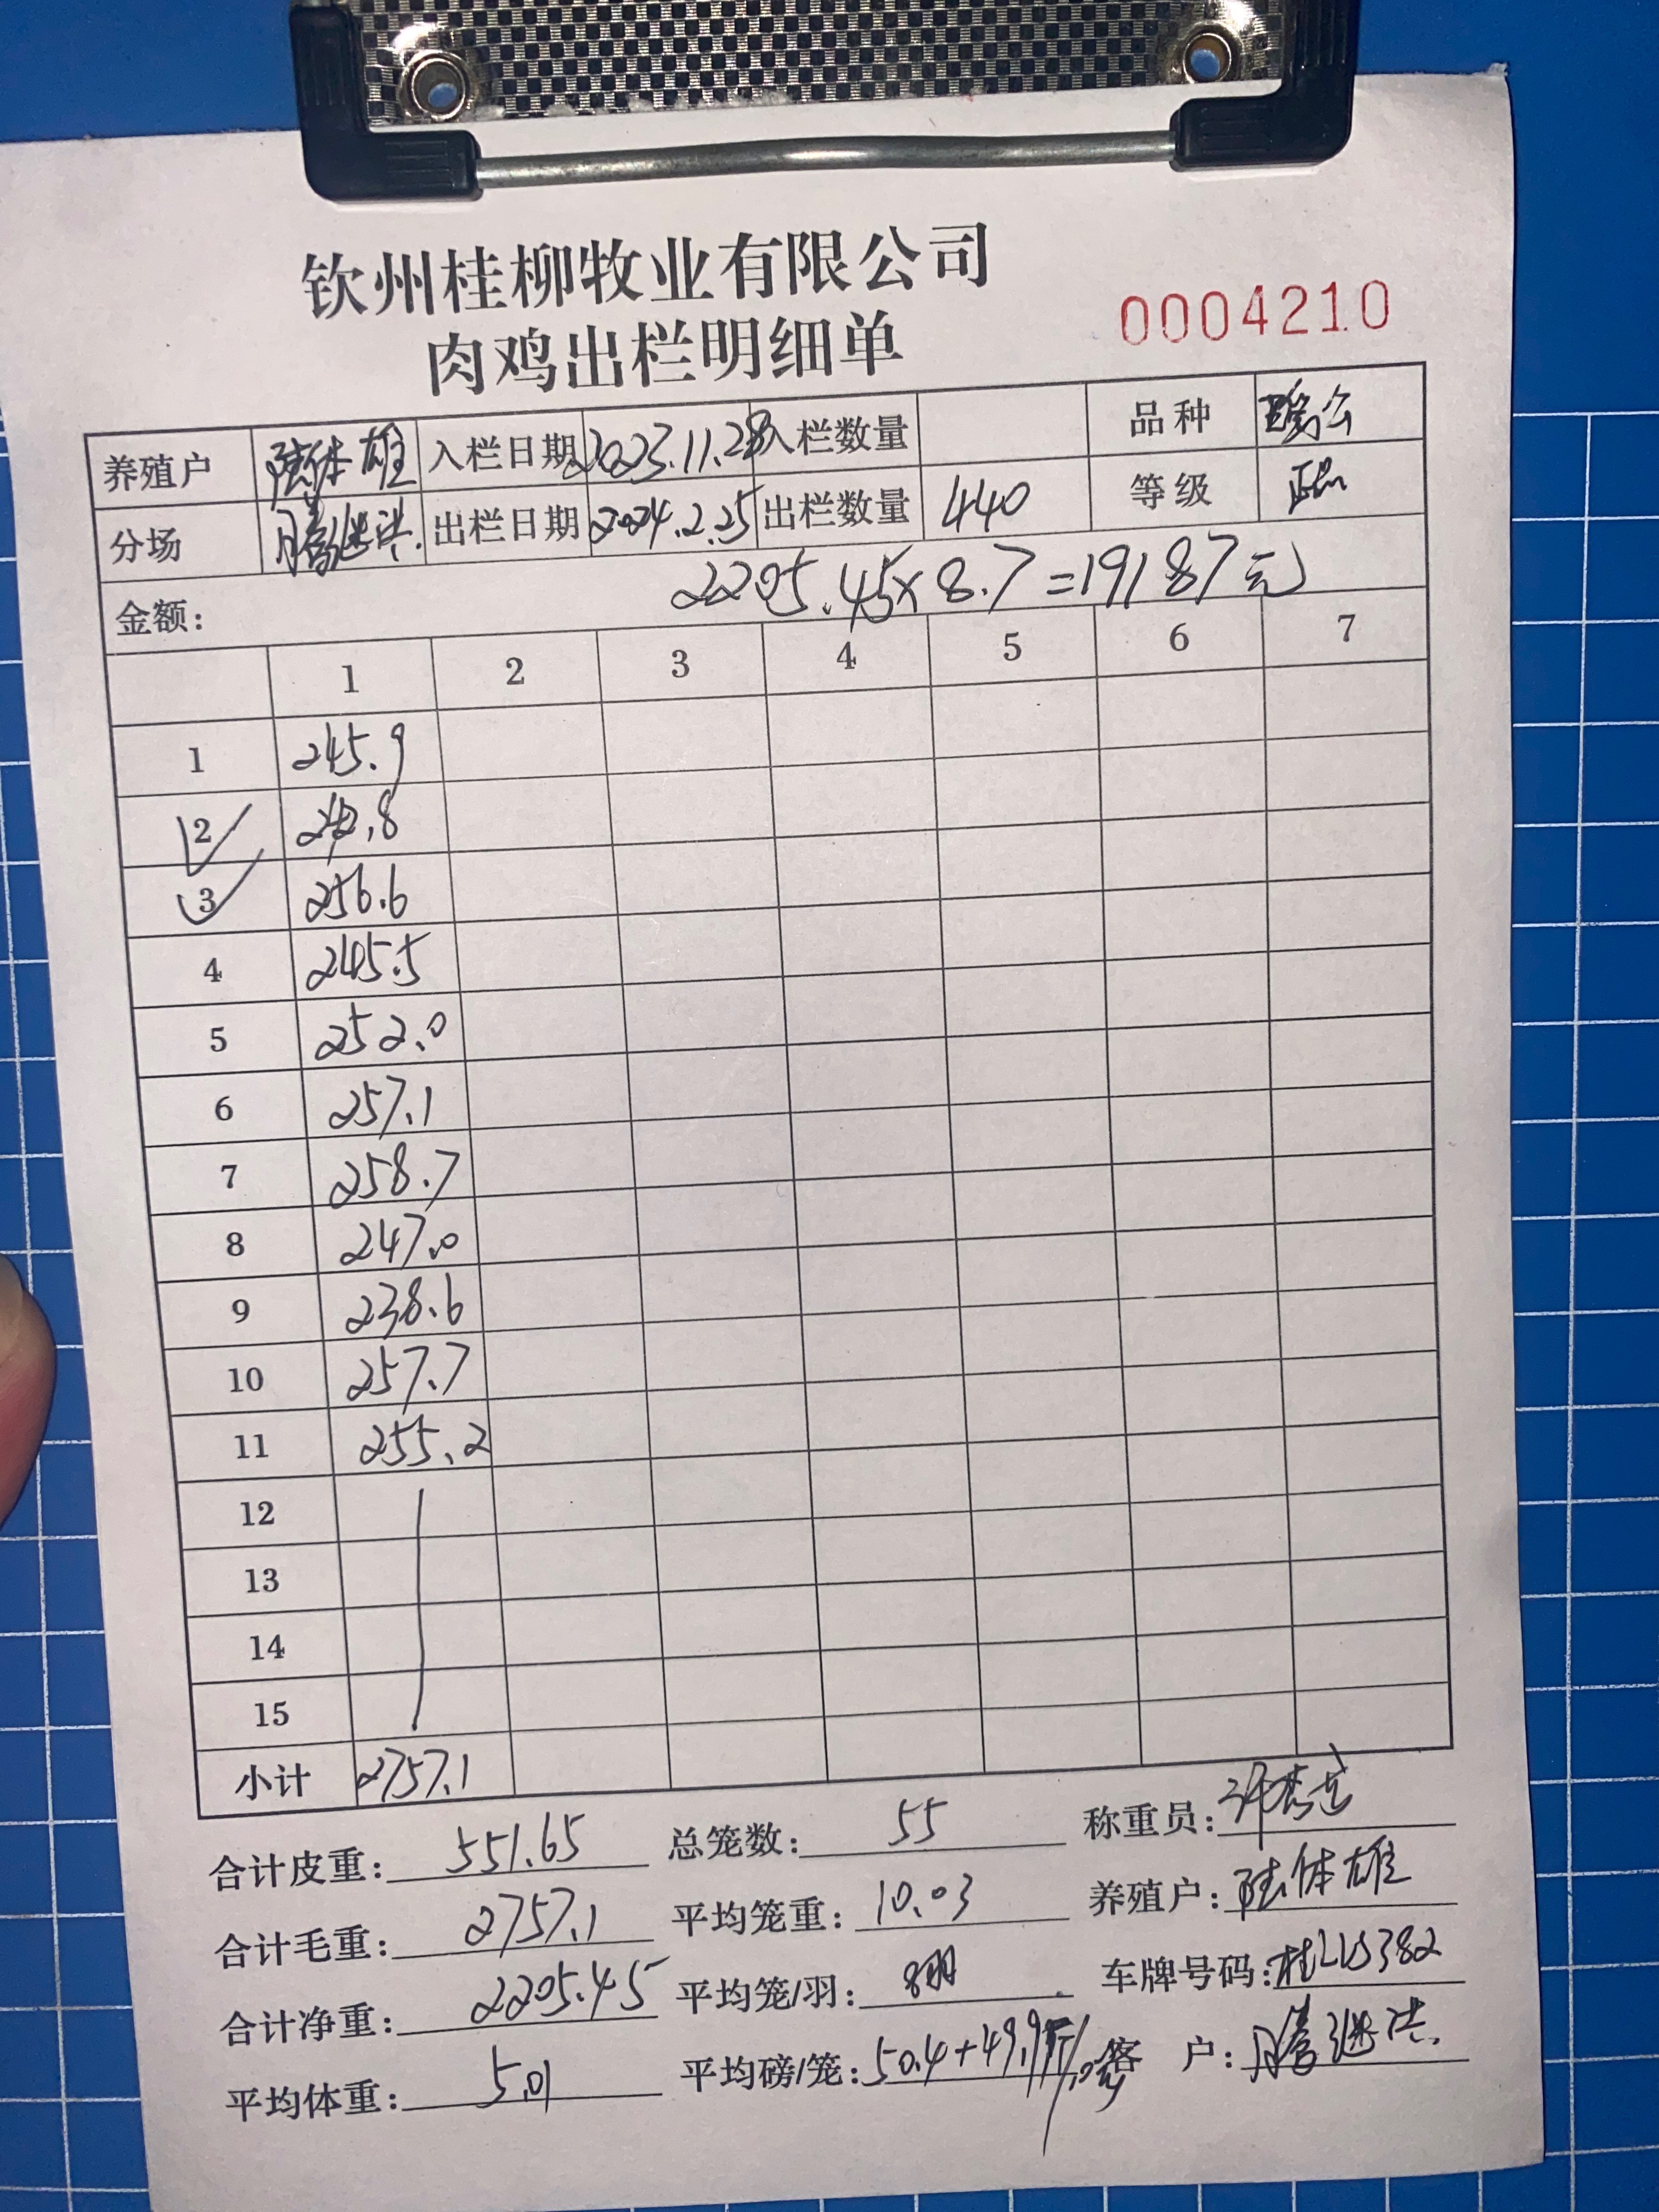 钦州桂柳牧业有限公司
肉鸡出栏明细单
0004210
养殖户 陆体雄 入栏日期 2023.11.28 入栏数量 品种
分场 出栏日期 2024.2.25 出栏数量 440 等级 正品
金额: 2205.45×8.7=19187元
1 2 3 4 5 6 7
1 245.9
2 242.8
3 256.6
4 245.5
5 252.0
6 257.1
7 258.7
8 247.0
9 238.6
10 257.7
11 255.2
12
13
14
15
小计 2757.1
合计皮重: 551.65 总笼数: 55 称重员:
合计毛重: 2757.1 平均笼重: 10.03 养殖户: 陆体雄
合计净重: 2205.45 平均笼/羽: 8羽 车牌号码:
平均体重: 5.01 平均磅/笼: 50.4+49.9 客 户: